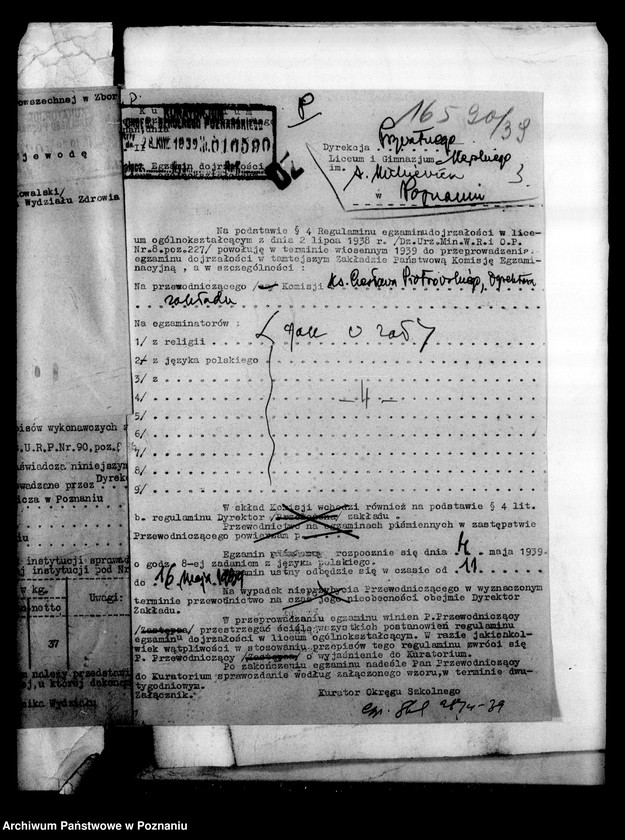 owszechnej w Zbor
jewodę
owalski/
Wydziału Zdrowia
pisów wykonawczych z
.U.R.P.Nr.90,poz.
świadcza niniejszym
wadzane przez Dyrek
icza w Poznaniu
j instytucji pod Nr
w kg.
netto
Uwagi:
37
m należy przedstawi
ej, u której dokona
nika Wydziału
P.
SZKOLNEGO POZNAŃSKIEGO
28.KWI.1939 010580
Egzamin dojrzałości
P
165 90/39
Dyrekcja Prywatnego
Liceum i Gimnazjum Męskiego
im. A. Mickiewicza
w Poznaniu
Na podstawie § 4 Regulaminu egzaminu dojrzałości w lice-
um ogólnokształcącym z dnia 2 lipca 1938 r. /Dz.Urz.Min.W.R.i O.P.
Nr.8.poz.227/ powołuję w terminie wiosennym 1939 do przeprowadzenia
egzaminu dojrzałości w tamtejszym Zakładzie Państwową Komisję Egzami-
nacyjną , a w szczególności :
Na przewodniczącego Komisji Ks. Czesława Piotrowskiego, Dyrektora
zakładu
Na egzaminatorów :
1/ z religii
2/ z języka polskiego
3/ z
4/
5/
6/
7/
8/
9/
W skład Komisji wchodzi również na podstawie § 4 lit.
b. regulaminu Dyrektor /Przełożona/ zakładu .
Przewodnictwo na egzaminach piśmiennych w zastępstwie
Przewodniczącego powierzam p.
Egzamin piśmienny rozpocznie się dnia 4. maja 1939.
o godz. 8-ej zadaniem z języka polskiego.
Egzamin ustny odbędzie się w czasie od 11.
do 16 maja 1939
Na wypadek nieprzybycia Przewodniczącego w wyznaczonym
terminie przewodnictwo na czas jego nieobecności obejmie Dyrektor
Zakładu.
W przeprowadzaniu egzaminu winien P.Przewodniczący
/Zastępca/ przestrzegać ściśle wszystkich postanowień regulaminu
egzaminu dojrzałości w liceum ogólnokształcącym. W razie jakichkol-
wiek wątpliwości w stosowaniu przepisów tego regulaminu zwróci się
P. Przewodniczący /Zastępca/ o wyjaśnienie do Kuratorium.
Po zakończeniu egzaminu nadeśle Pan Przewodniczący
do Kuratorium sprawozdanie według załączonego wzoru,w terminie dwu-
tygodniowym.
Załącznik.
Kurator Okręgu Szkolnego
Archiwum Państwowe w Poznaniu